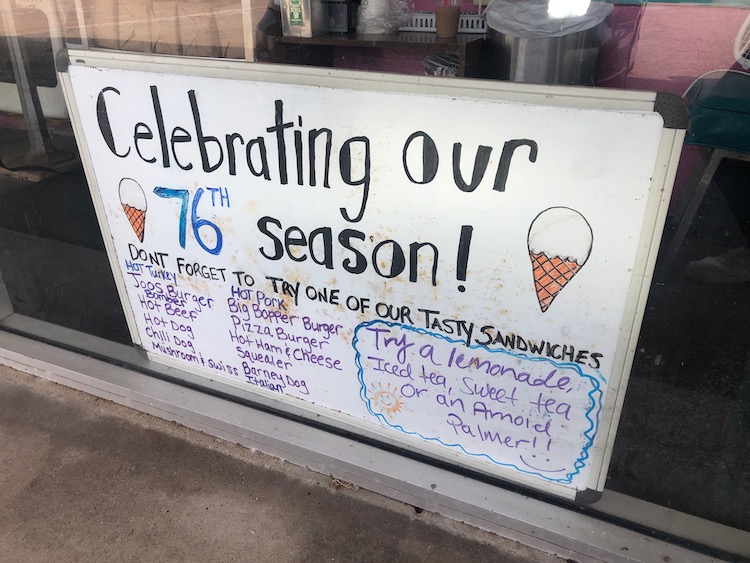 Celebrating our
76TH season!
DONT FORGET TO TRY ONE OF OUR TASTY SANDWICHES
HOT Turkey
Joos Burger
Bomber
Hot Beef
Hot Dog
Chili Dog
Mushroom & Swiss
Hot Pork
Big Bopper Burger
Pizza Burger
Hot Ham & Cheese
Squealer
Barney Dog
Italian
Try a lemonade,
Iced tea, Sweet tea
Or an Arnold
Palmer!!